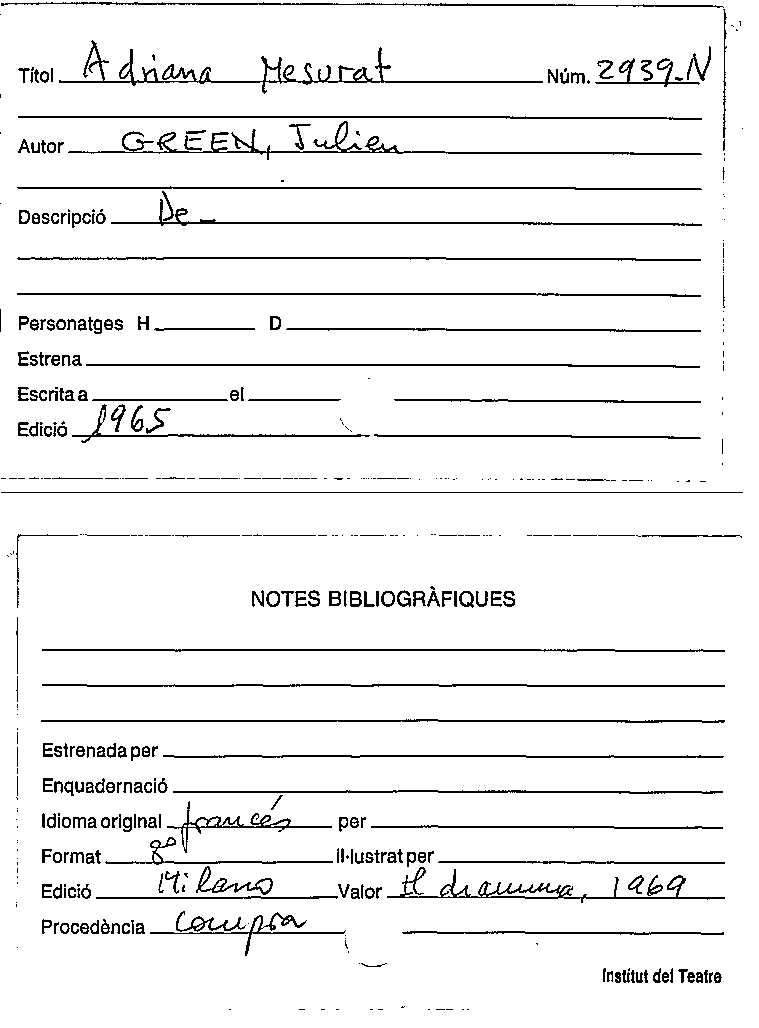 Títol Adriana Mesurat Núm. 2939-N
Autor GREEN, Julien
Descripció De
Personatges H D
Estrena
Escrita a el
Edició 1965
NOTES BIBLIOGRÀFIQUES
Estrenada per
Enquadernació
Idioma original francés per
Format 8º Il·lustrat per
Edició Milano Valor Il dramma, 1969
Procedència Compra
Institut del Teatre